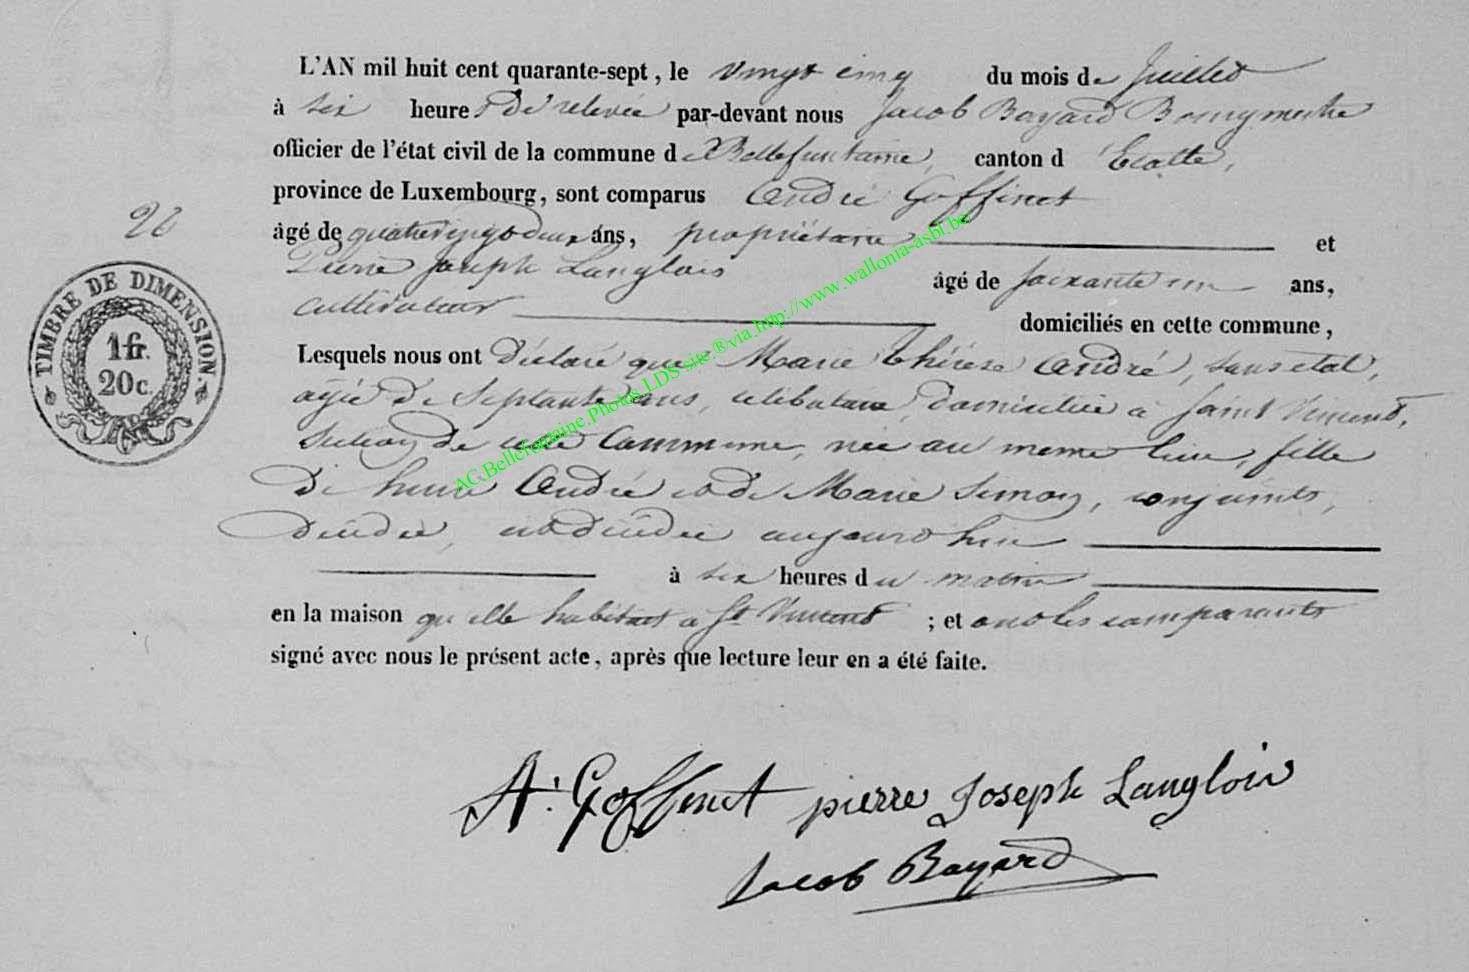 L'AN mil huit cent quarante-sept, le vingt cinq du mois de Juillet
à six heures de relevée par-devant nous Jacob Bayard Bourgmestre
officier de l'état civil de la commune de Bellefontaine, canton d'Etalle,
province de Luxembourg, sont comparus André Goffinet
26
âgé de quatrevingtdeux ans, propriétaire et
Pierre Joseph Langlois âgé de soixante un ans,
cultivateur domiciliés en cette commune,
TIMBRE DE DIMENSION.
1 fr.
20 c.
Lesquels nous ont déclaré que Marie Thérèse André, sans état,
agée de septante ans, célibataire, domiciliée à Saint Vincent,
section de cette commune, née au meme lieu, fille
de André et de Marie Simon, conjoints,
décédés, est décédée aujourd'hui
à six heures du matin
en la maison qu'elle habitait à St Vincent ; et ont les comparants
signé avec nous le présent acte, après que lecture leur en a été faite.
A: Goffinet pierre Joseph Langlois
Jacob Bayard
AG.Bellefontaine.Photos.LDS site.®via.http://www.wallonia-asbl.be/